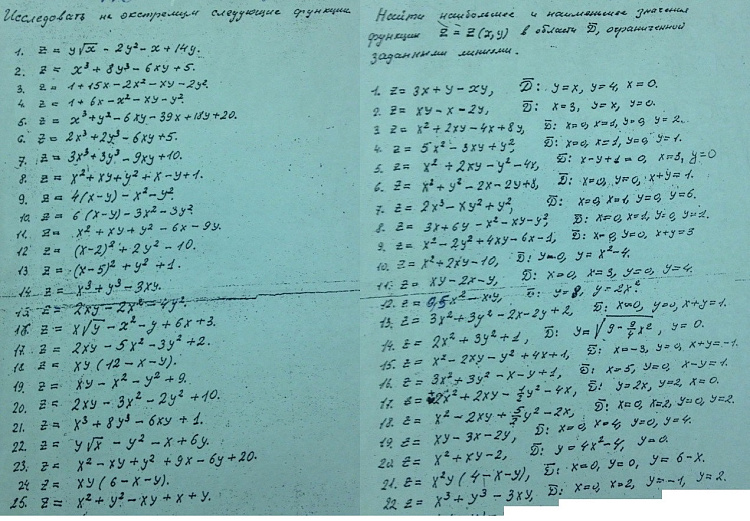 Исследовать на экстремум следующие функции
1. z = y√x - 2y² - x + 14y.
2. z = x³ + 8y³ - 6xy + 5.
3. z = 1 + 15x - 2x² - xy - 2y².
4. z = 1 + 6x - x² - xy - y².
5. z = x³ + y² - 6xy - 39x + 18y + 20.
6. z = 2x³ + 2y³ - 6xy + 5.
7. z = 3x³ + 3y³ - 9xy + 10.
8. z = x² + xy + y² + x - y + 1.
9. z = 4(x - y) - x² - y².
10. z = 6(x - y) - 3x² - 3y².
11. z = x² + xy + y² - 6x - 9y.
12 z = (x - 2)² + 2y² - 10.
13 z = (x - 5)² + y² + 1.
14 z = x³ + y³ - 3xy.
15. z = 2xy - 2x² - 4y².
16. z = x√y - x² - y + 6x + 3.
17. z = 2xy - 5x² - 3y² + 2.
18 z = xy(12 - x - y).
19. z = xy - x² - y² + 9.
20. z = 2xy - 3x² - 2y² + 10.
21. z = x³ + 8y³ - 6xy + 1.
22. z = y√x - y² - x + 6y.
23. z = x² - xy + y² + 9x - 6y + 20.
24 z = xy(6 - x - y).
25. z = x² + y² - xy + x + y.
Найти наибольшее и наименьшее значения
функции z = z(x,y) в области D̄, ограниченной
заданными линиями.
1. z = 3x + y - xy, D̄: y = x, y = 4, x = 0.
2. z = xy - x - 2y, D̄: x = 3, y = x, y = 0.
3 z = x² + 2xy - 4x + 8y, D̄: x = 0, x = 1, y = 0, y = 2.
4. z = 5x² - 3xy + y², D̄: x = 0, x = 1, y = 0, y = 1.
5. z = x² + 2xy - y² - 4x, D̄: x - y + 1 = 0, x = 3, y = 0
6. z = x² + y² - 2x - 2y + 8, D̄: x = 0, y = 0, x + y = 1.
7. z = 2x³ - xy² + y², D̄: x = 0, x = 1, y = 0, y = 6.
8. z = 3x + 6y - x² - xy - y², D̄: x = 0, x = 1, y = 0, y = 1.
9. z = x² - 2y² + 4xy - 6x - 1, D̄: x = 0, y = 0, x + y = 3
10. z = x² + 2xy - 10, D̄: y = 0, y = x² - 4.
11. z = xy - 2x - y, D̄: x = 0, x = 3, y = 0, y = 4.
12. z = 0,5x² - xy, D̄: y = 8, y = 2x²
13. z = 3x² + 3y² - 2x - 2y + 2, D̄: x = 0, y = 0, x + y = 1.
14. z = 2x² + 3y² + 1, D̄: y = √(9 - 9/4 x²), y = 0.
15. z = x² - 2xy - y² + 4x + 1, D̄: x = -3, y = 0, x + y = -1.
16. z = 3x² + 3y² - x - y + 1, D̄: x = 5, y = 0, x - y = 1.
17. z = 2x² + 2xy - 1/2 y² - 4x, D̄: y = 2x, y = 2, x = 0.
18. z = x² - 2xy + 5/2 y² - 2x, D̄: x = 0, x = 2, y = 0, y = 2.
19. z = xy - 3x - 2y, D̄: x = 0, x = 4, y = 0, y = 4.
20 z = x² + xy - 2, D̄: y = 4x² - 4, y = 0.
21. z = x²y(4 - x - y), D̄: x = 0, y = 0, y = 6 - x.
22. z = x³ + y³ - 3xy, D̄: x = 0, x = 2, y = -1, y = 2.